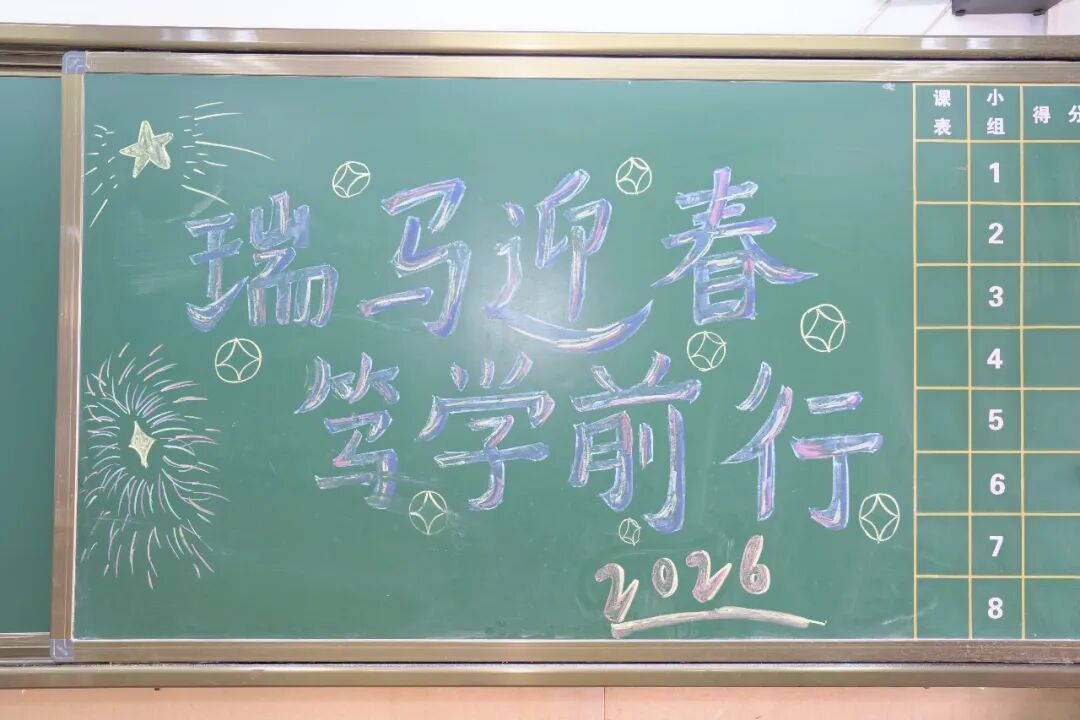 瑞马迎春
笃学前行
2026
课表 小组 得分
1
2
3
4
5
6
7
8